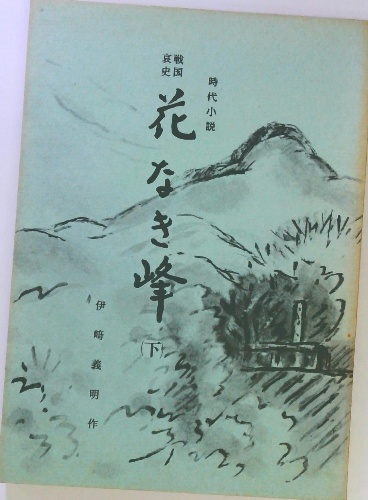 時代小説
戦国
哀史
花なき峰
(下)
伊﨑義明作